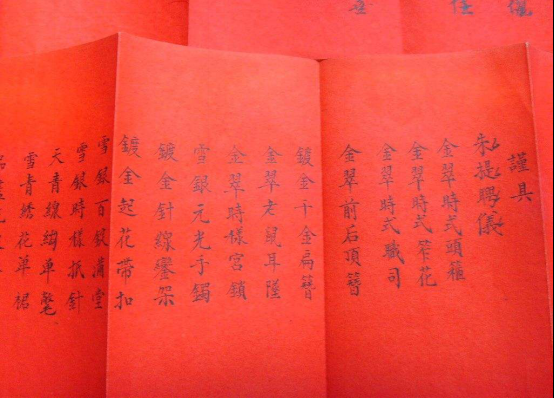 謹具
金翠時式頭箍
金翠時式笄花
金翠時式職司
金翠前后頂簪
鍍金千金扁簪
金翠老鼠耳墜
金翠時樣宮鎖
雪銀元光手鐲
鍍金針線架
鍍金起花帶扣
雪銀百鎖滿堂
雪銀時樣抿針
天青線單
雪青綉花單裙